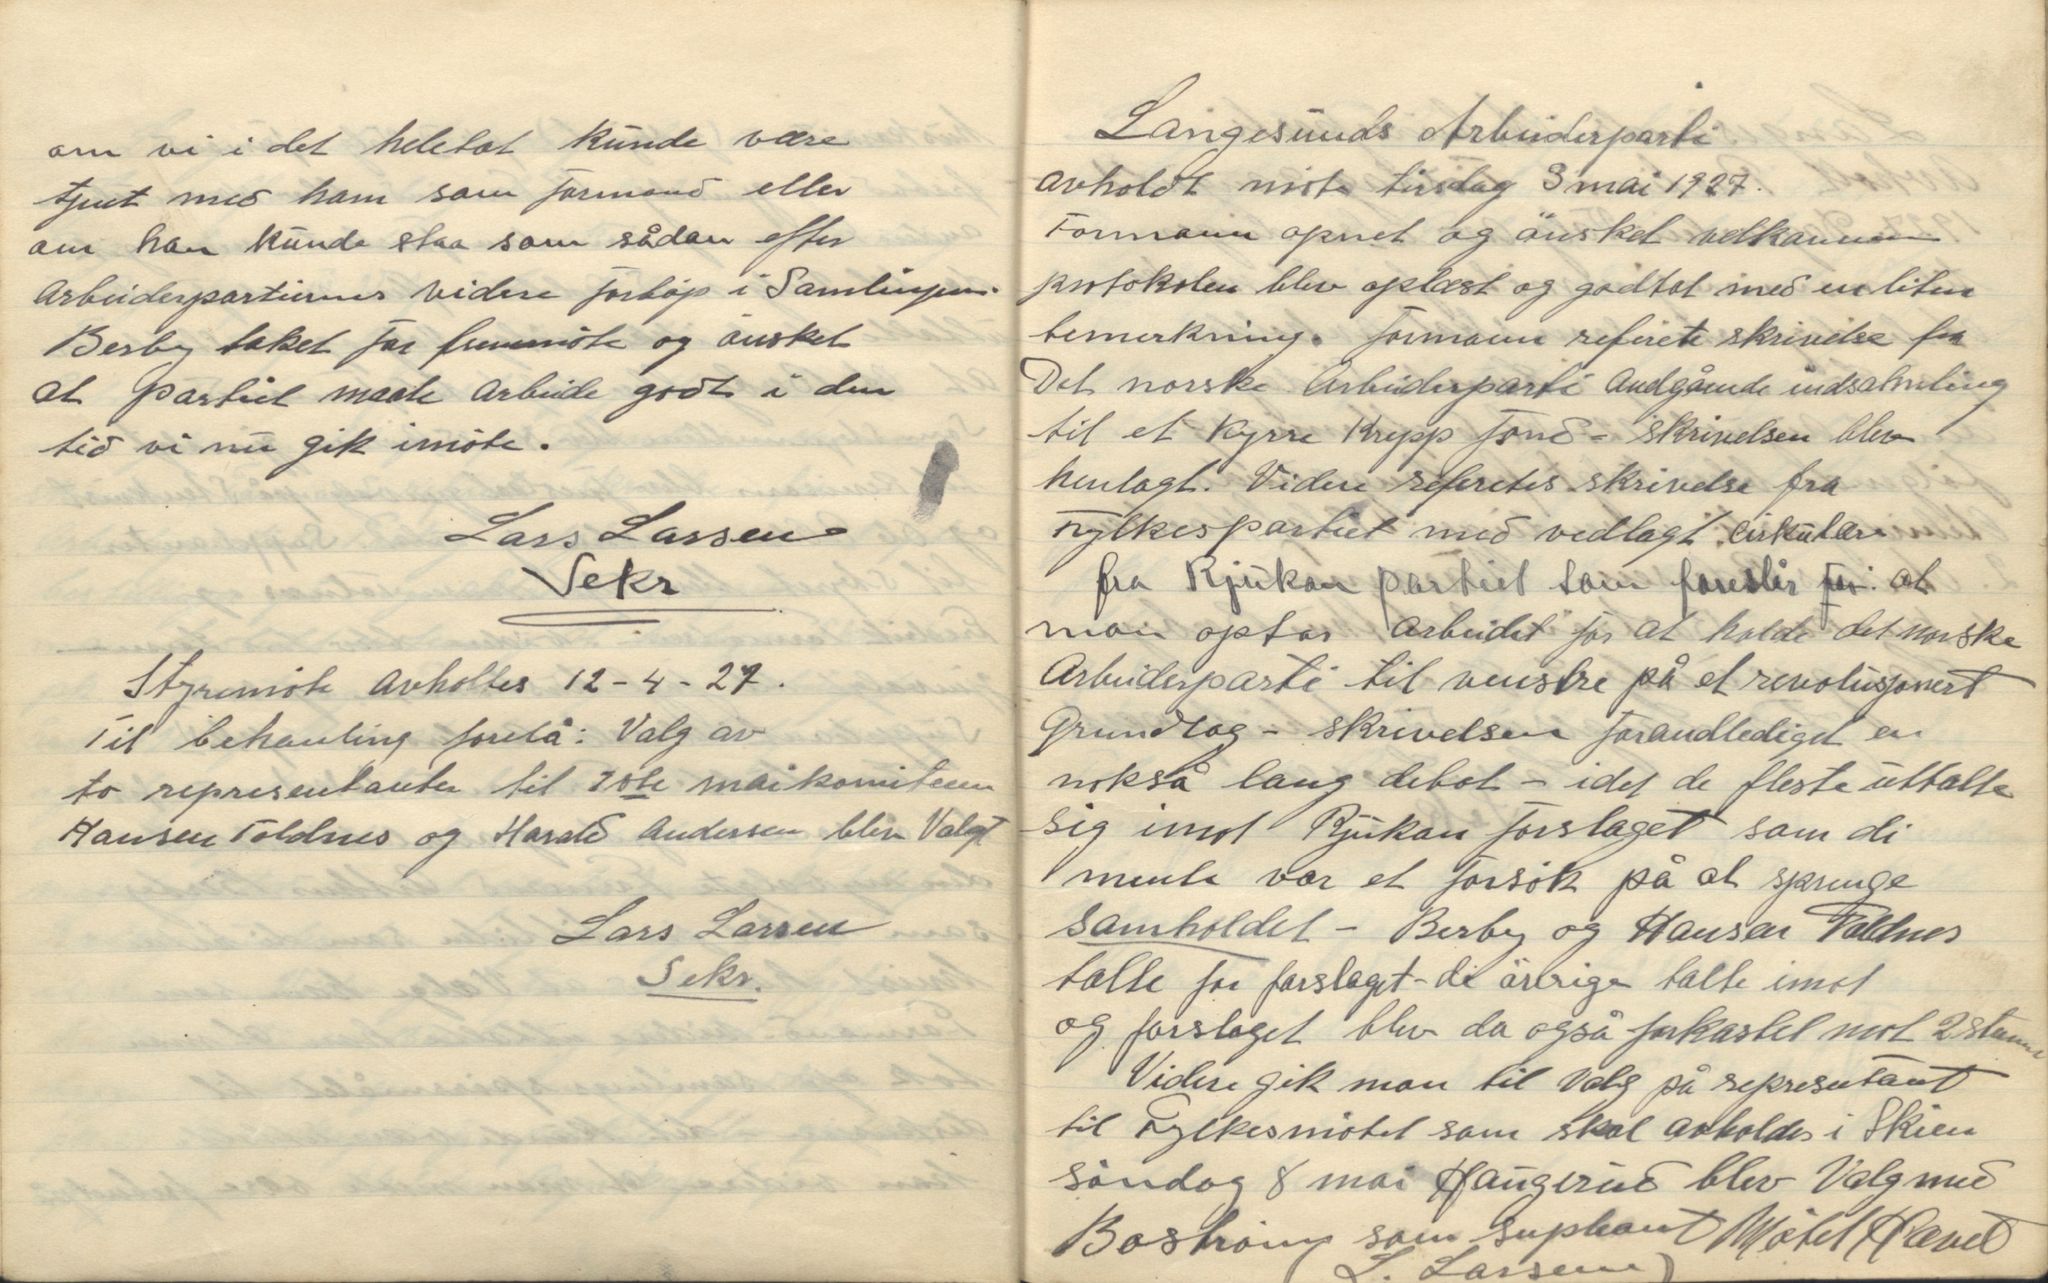 om vi i det heletat kunde være
tjent med ham som formand eller
om han kunde staa som sådan efter
Arbeiderpartiernes videre forløp i Samlingen.
Berby taket for fremmøte og ønsket
at Partiet maate Arbeide godt i den
tid vi nu gik imøte.
Lars Larsen
Sekr
Styremøte Avholtes 12-4-27.
Til behanling forelå: Valg av
to representanter til 1ste maikomiteen
Hansen Foldnes og Harald Andersen blev Valgt
Lars Larsen
Sekr.
Langesunds Arbeiderparti
Avholdt møte tirsdag 3 mai 1927.
Formann opnet og ønsket velkommen
protokolen blev oplæst og godtat med en liten
bemerkning. Formann referete skrivelse fra
Det norske Arbeiderparti Andgående indsamling
til et Kyrre Krepp fond - skrivelsen blev
henlagt. Videre referetes skrivelse fra
Fylkespartiet med vedlagt cirkulære
fra Rjukan partiet som foreslår for: at
man optar Arbeidet for at holde det norske
Arbeiderparti til venstre på et revolusjonert
Grundlag - skrivelsen forandlediget en
nokså lang debat - idet de fleste uttalte
sig imot Rjukan forslaget som di
mente var et forsøk på at sprenge
samholdet - Berby og Hansen Foldnes
talte for forslaget - de øvrige talte imot
og forslaget blev da også forkastet mot 2 stemm
Videre gik man til Valg på representant
til Fylkesmøtet som skal avholdes i Skien
søndag 8 mai Haugerud blev Valg med
Bostrøm som supleant Møtet Hævet
L. Larsen